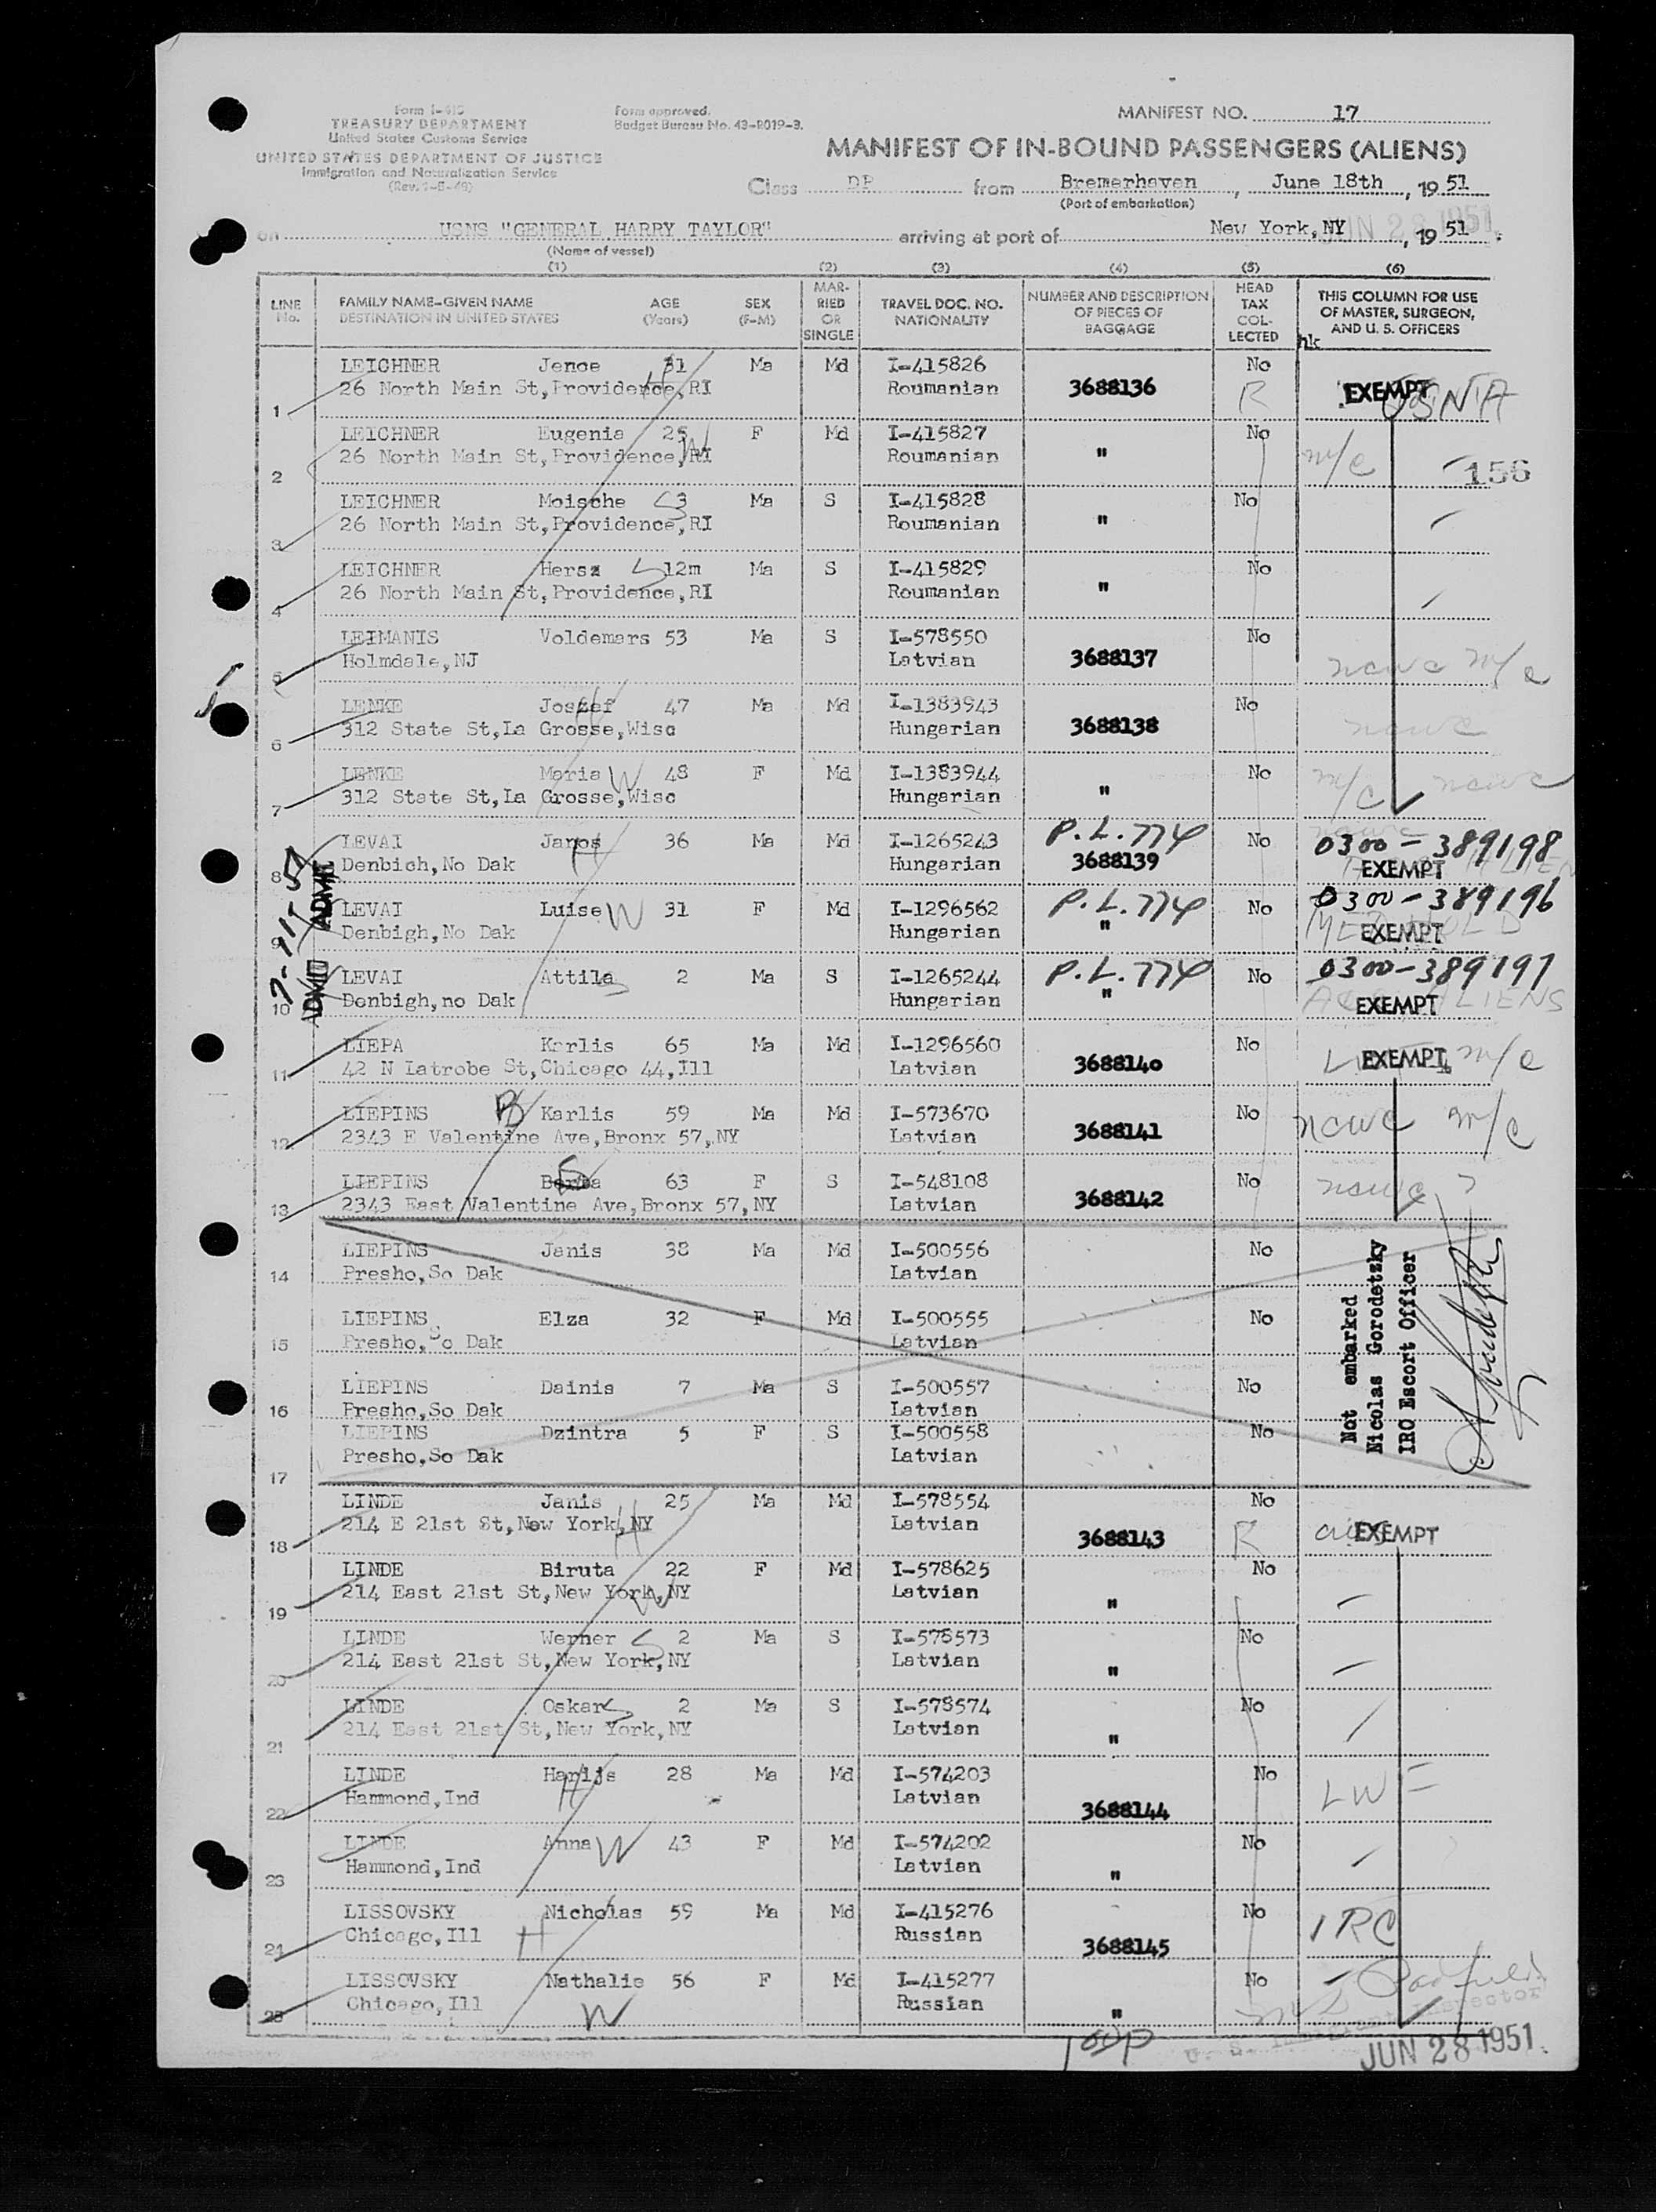 Form I-415
TREASURY DEPARTMENT
United States Customs Service
UNITED STATES DEPARTMENT OF JUSTICE
Immigration and Naturalization Service
(Rev. 1-5-49)
Form approved.
Budget Bureau No. 43-R019-3.
MANIFEST NO. 17
MANIFEST OF IN-BOUND PASSENGERS (ALIENS)
Class DP from Bremerhaven, June 18th, 19 51
(Port of embarkation)
on USNS "GENERAL HARRY TAYLOR" arriving at port of New York, NY, 19 51.
JUN 28 1951
(Name of vessel)
(1) (2) (3) (4) (5) (6)
LINE No. FAMILY NAME-GIVEN NAME DESTINATION IN UNITED STATES AGE (Years) SEX (F-M) MARRIED OR SINGLE TRAVEL DOC. NO. NATIONALITY NUMBER AND DESCRIPTION OF PIECES OF BAGGAGE HEAD TAX COLLECTED THIS COLUMN FOR USE OF MASTER, SURGEON, AND U. S. OFFICERS
hk
LEICHNER Jenoe 31 Ma Md I-415826 No
1 26 North Main St,Providence,RI H Roumanian 3688136 R EXEMPT USNA
LEICHNER Eugenia 25 F Md I-415827 No
2 26 North Main St,Providence,RI W Roumanian " m/c 156
LEICHNER Moische S 3 Ma S I-415828 No
3 26 North Main St,Providence,RI Roumanian "
LEICHNER Hersz S 12m Ma S I-415829 No
4 26 North Main St,Providence,RI Roumanian "
LEIMANIS Voldemars 53 Ma S I-578550 No
5 Holmdale,NJ Latvian 3688137 ncwc m/c
LENKE Joszef H 47 Ma Md I-1383943 No
6 312 State St,La Grosse,Wisc Hungarian 3688138 ncwc
LENKE Maria W 48 F Md I-1383944 No
7 312 State St,La Grosse,Wisc Hungarian " m/c ncwc
LEVAI Janos H 36 Ma Md I-1265243 P.L.774 No 0300-389198
8 Denbich,No Dak Hungarian 3688139 EXEMPT
LEVAI Luise W 31 F Md I-1296562 P.L.774 No 0300-389196
9 Denbigh,No Dak Hungarian " MED HOLD EXEMPT
LEVAI Attila S 2 Ma S I-1265244 P.L.774 No 0300-389197
10 Denbigh,no Dak Hungarian " ALIENS EXEMPT
7-11-51
ADMIT
ADMIT
LIEPA Karlis 65 Ma Md I-1296560 No
11 42 N Latrobe St,Chicago 44,Ill Latvian 3688140 EXEMPT m/c
LIEPINS B Karlis 59 Ma Md I-573670 No
12 2343 E Valentine Ave,Bronx 57,NY Latvian 3688141 ncwc m/c
LIEPINS S 63 F S I-548108 No
13 2343 East Valentine Ave,Bronx 57,NY Latvian 3688142 ncwc
LIEPINS Janis 38 Ma Md I-500556 No
14 Presho,So Dak Latvian
LIEPINS Elza 32 F Md I-500555 No
15 Presho,So Dak Latvian
LIEPINS Dainis 7 Ma S I-500557 No
16 Presho,So Dak Latvian
LIEPINS Dzintra 5 F S I-500558 No
17 Presho,So Dak Latvian
Not embarked
Nicolas Gorodetzky
IRO Escort Officer
LINDE Janis 25 Ma Md I-578554 No
18 214 E 21st St,New York,NY H Latvian 3688143 R EXEMPT
LINDE Biruta 22 F Md I-578625 No
19 214 East 21st St,New York,NY W Latvian "
LINDE Werner S 2 Ma S I-578573 No
20 214 East 21st St,New York,NY Latvian "
LINDE Oskar S 2 Ma S I-578574 No
21 214 East 21st St,New York,NY Latvian "
LINDE Harijs H 28 Ma Md I-574203 No
22 Hammond,Ind Latvian 3688144 LWF
LINDE Anna W 43 F Md I-574202 No
23 Hammond,Ind Latvian "
LISSOVSKY Nicholas 59 Ma Md I-415276 No
24 Chicago,Ill H Russian 3688145 IRC
LISSOVSKY Nathalie 56 F Md I-415277 No
25 Chicago,Ill W Russian "
JUN 28 1951